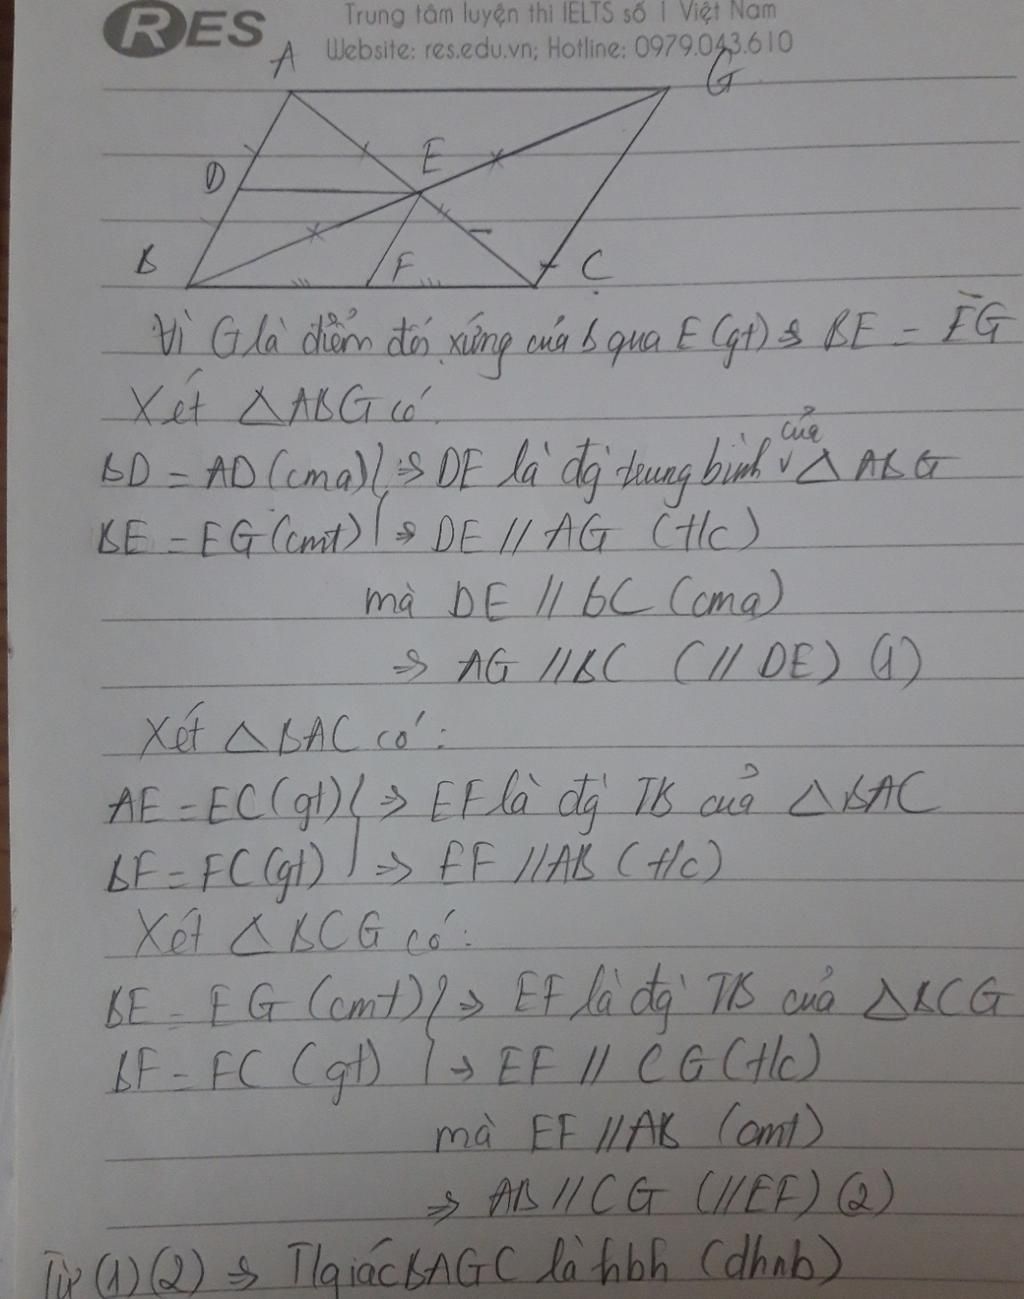 RES
Trung tâm luyện thi IELTS số 1 Việt Nam
Website: res.edu.vn; Hotline: 0979.043.610
A
G
E
D
B
F
C
Vì G là điểm đối xứng của B qua E (gt) => BE = EG
Xét △ABG có
BD = AD (cma) } => DE là đg trung bình của △ABG
BE = EG (cmt) } => DE // AG (t/c)
mà DE // BC (cma)
=> AG // BC (// DE) (1)
Xét △BAC có:
AE = EC (gt) } => EF là đg TB của △BAC
BF = FC (gt) } => EF // AB (t/c)
Xét △BCG có:
BE = EG (cmt) } => EF là đg TB của △BCG
BF = FC (gt) } => EF // CG (t/c)
mà EF // AB (cmt)
=> AB // CG (// EF) (2)
Từ (1) (2) => Tlgiác BAGC là hbh (dhnb)